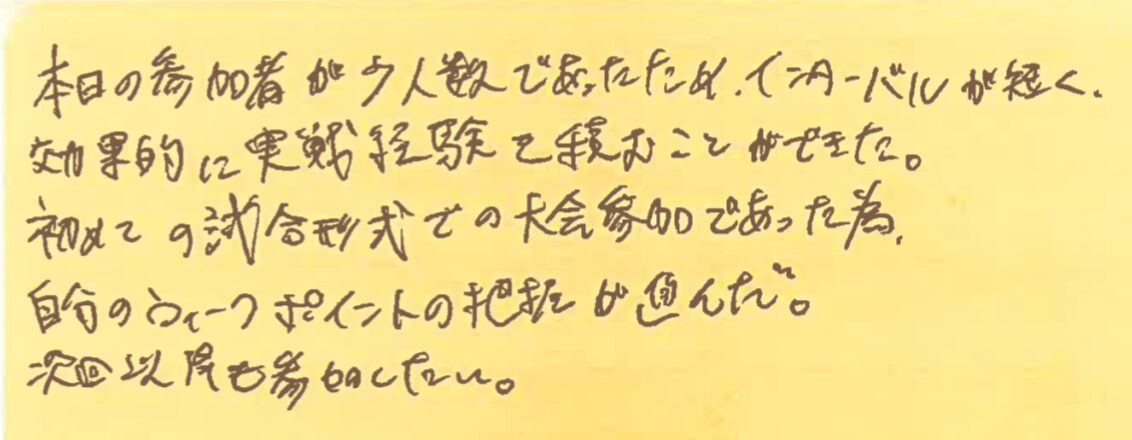 本日の参加者が少人数であったため、インターバルが短く、
効果的に実戦経験を積むことができた。
初めての試合形式での大会参加であった為、
自分のウィークポイントの把握が進んだ。
次回以降も参加したい。